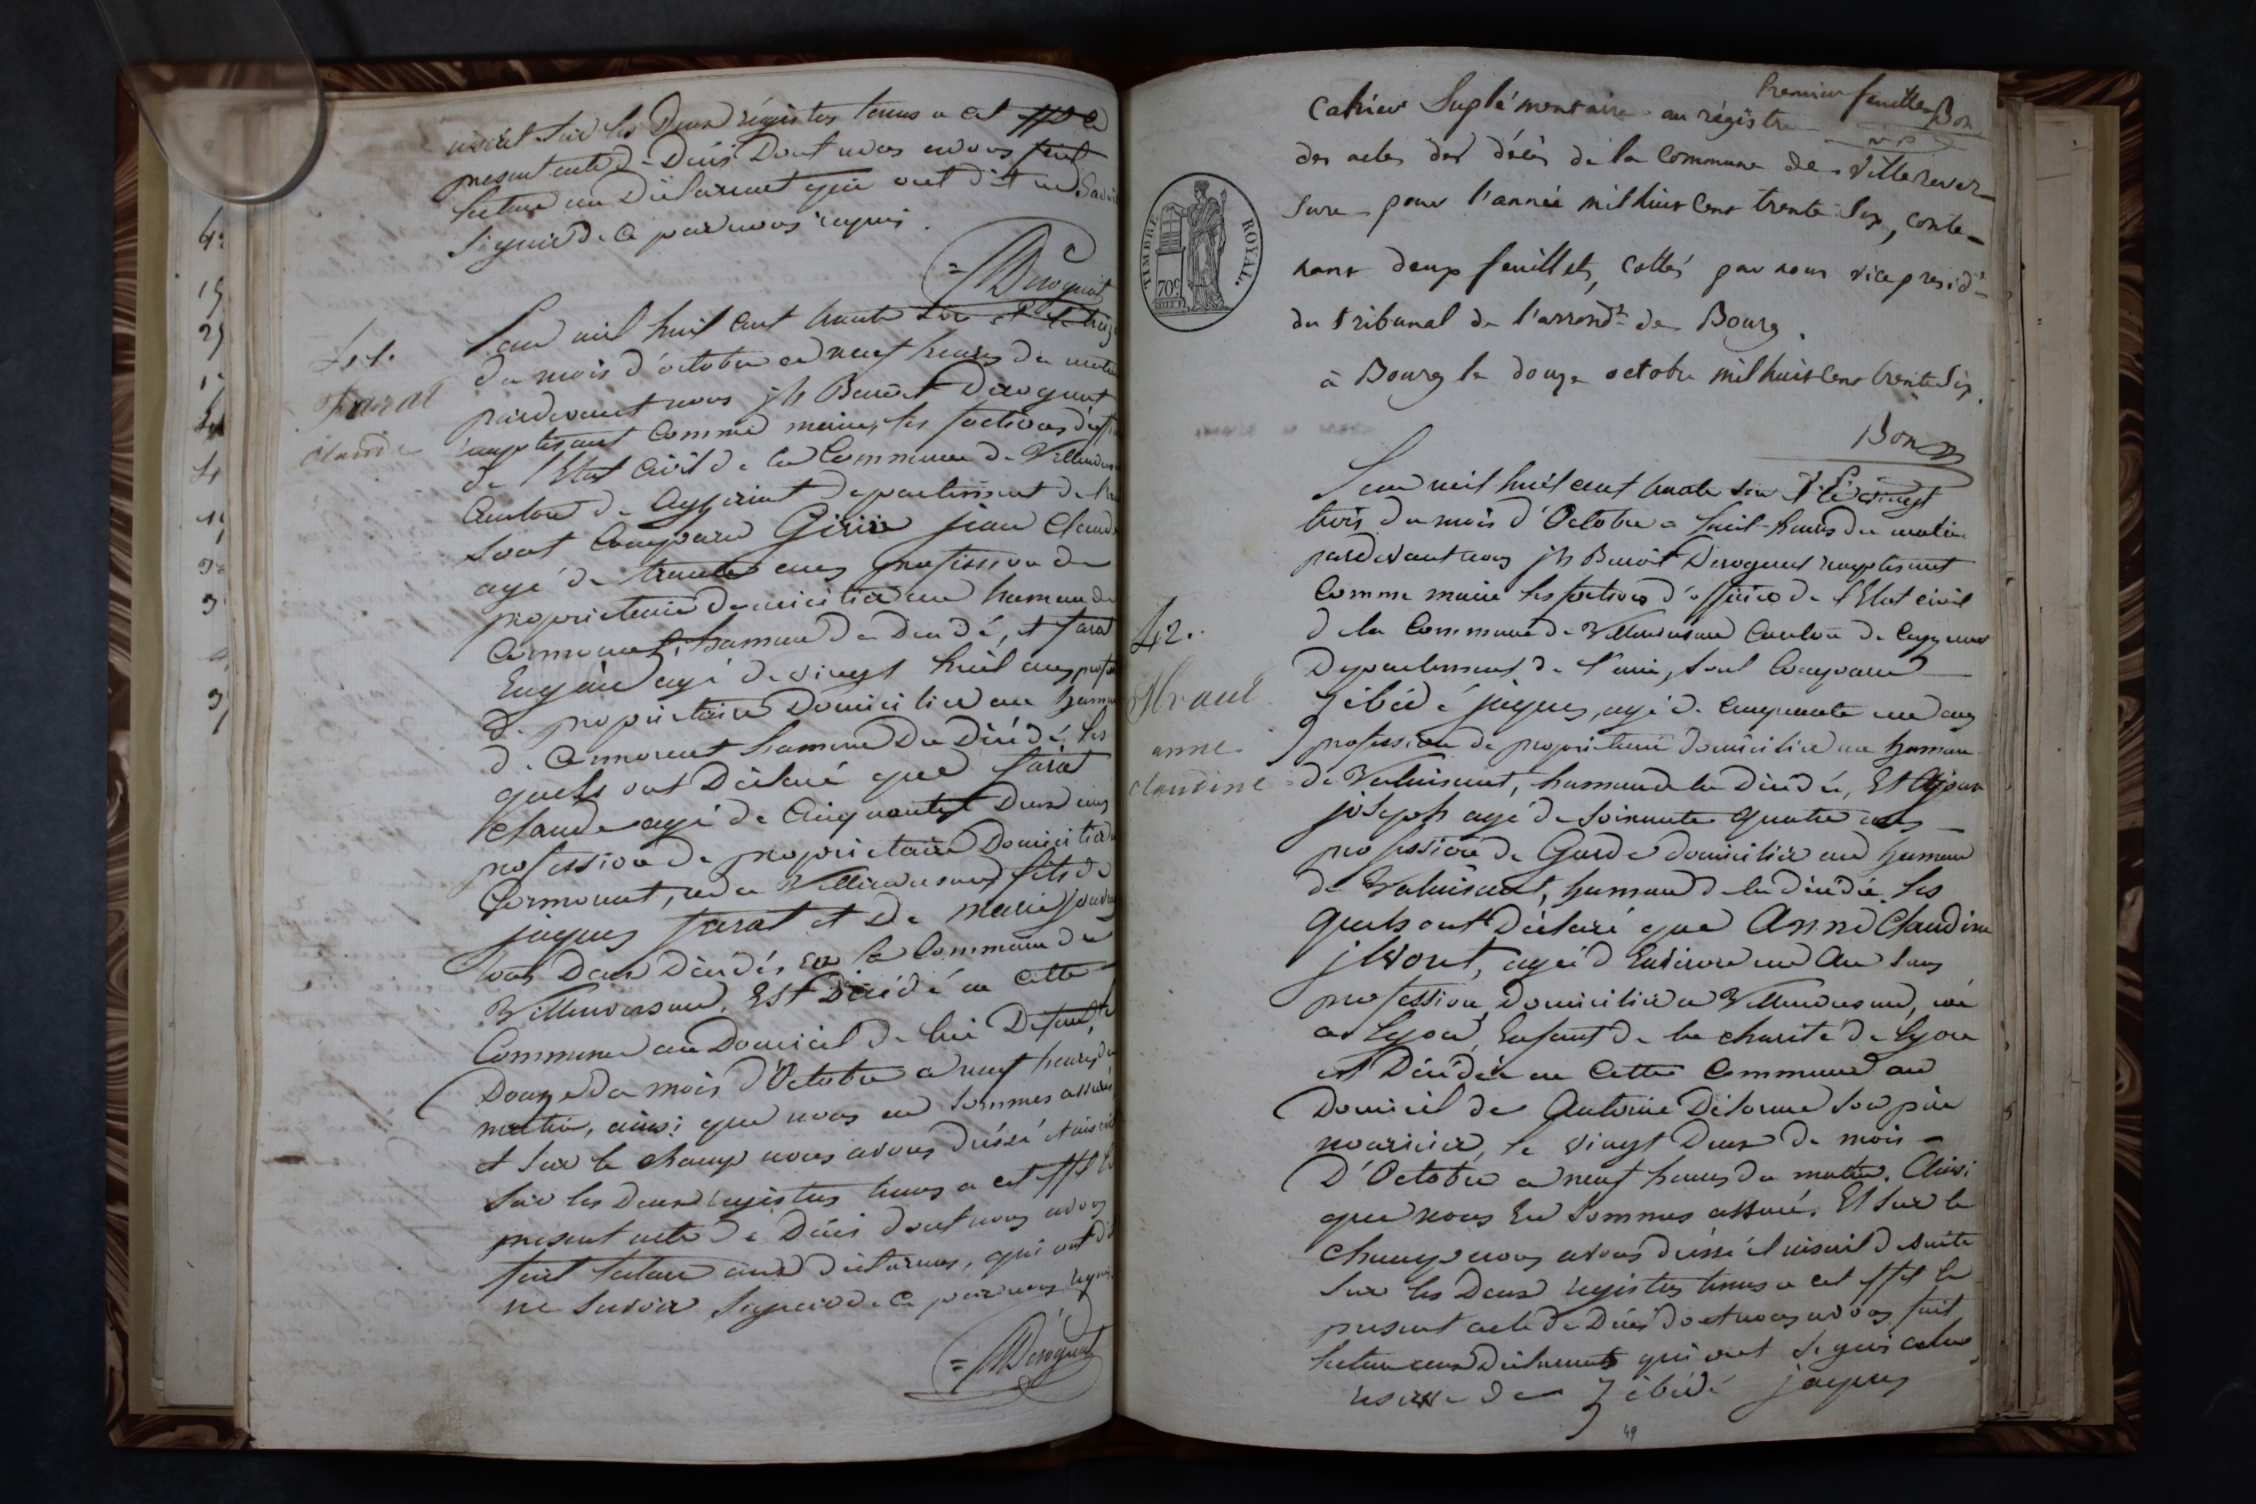 inscrit sur les Deux régistres tenus a cet effet le
présent acte de Décès Dont nous avons fait
lecture au Déclarant qui ont dit ne savoir
signer de ce par nous requis.
= Derognat
41.
Farat
claude
L'an mil huit cent trente six et le treize
du mois d'octobre a neuf heures du matin
pardevant nous jh Benoit Derognat
remplissant comme maire, les foctions d'off
de l'Etat Civil de la Commune de Villereversure
Canton de Ceyzeriat Département de l'ain
sont Comparu Girié jean Claude
agé de trente ans profession de
proprietaire domicilié au hameau de
Cormorant, hameau de Dudé, et farat
Eugène agé de vingt huit ans profess
de proprietaire Domicilié au hameau
de Cormorant hameau Du Décédé, les
quels ont Déclaré que farat
Claude agé de Cinquante Deux ans
profession de proprietaire Domicilié a
Cormorant, né a Villereversure fils de
jaques farat et de marie
tous Deux Décédés en la Commune de
Villereversure, Est Décédé en cette
Commune au Domicil de lui Defunt, le
Douze du mois D'Octobre a neuf heures du
matin, ainsi que nous en sommes assuré
et sur le champ nous avons dréssé et inscrit
sur les Deux régistres tenus a cet effet le
présent acte de Décès dont nous avons
fait lecture aux déclarans, qui ont dit
ne savoir signer de ce par nous requis
= Derognat
Premier feuillet Bon
v.P
Cahier Suplémentaire au régistre
des actes des décès de la Commune de Villerever-
sure pour l'année mil huit cent trente Six, conte-
nant deux feuillets, cottés par nous vice presidt
du tribunal de l'arrondt de Bourg.
à Bourg le douze octobre mil huit cent trente Six.
Bon
v.P.
TIMBRE ROYAL.
70c
42.
jlvant
anne
claudine
L'an mil huit cent trente six et le vingt
trois du mois d'Octobre a huit heures du matin
pardevant nous jh Benoit Derognat remplissant
Comme maire les foctions d'officier de l'Etat civil
de la Commune de Villereversure Canton de Ceyzeriat
Departement de l'ain, sont Comparu
Zébédé jaques, agé de Cinquante un ans
profession de proprietaire domicilié au hameau
de Valuisant, hameau de la Décédée, Et
joseph agé de soixante quatre ans
profession de Garde domicilié au hameau
de Valuisant, hameau de la décédée. les
quels ont Déclaré que Anne Claudine
jlvont, agée d'Environ un An sans
profession, Domiciliée a Villereversure, née
a Lyon, Enfant de la charité de Lyon
est Décédée en Cette Commune au
Domicil de Antoine Délorme son père
nouricier, le vingt Deux du mois
D'Octobre a neuf heures du matin. Ainsi
que nous En Sommes assuré. Et sur le
champ nous avons dréssé et inscrit de suite
sur les Deux régistres tenus a cet effet le
présent acte de Décès dont nous avons fait
lecture aux Déclarants qui ont signé celui
reserve de Zébédé jaques
49